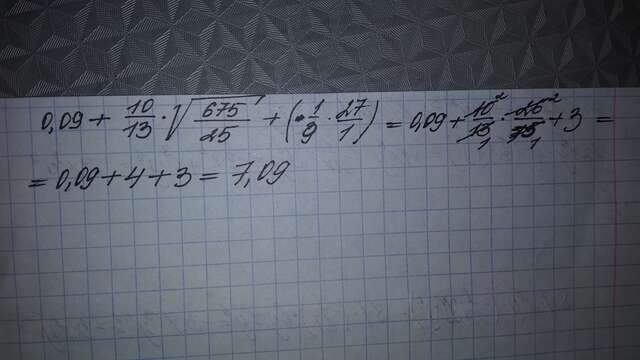 0,09 + 10/13 · √(675/25) + (1/9 · 27/1) = 0,09 + 10²/13₁ · 26²/75₁ + 3 =
= 0,09 + 4 + 3 = 7,09